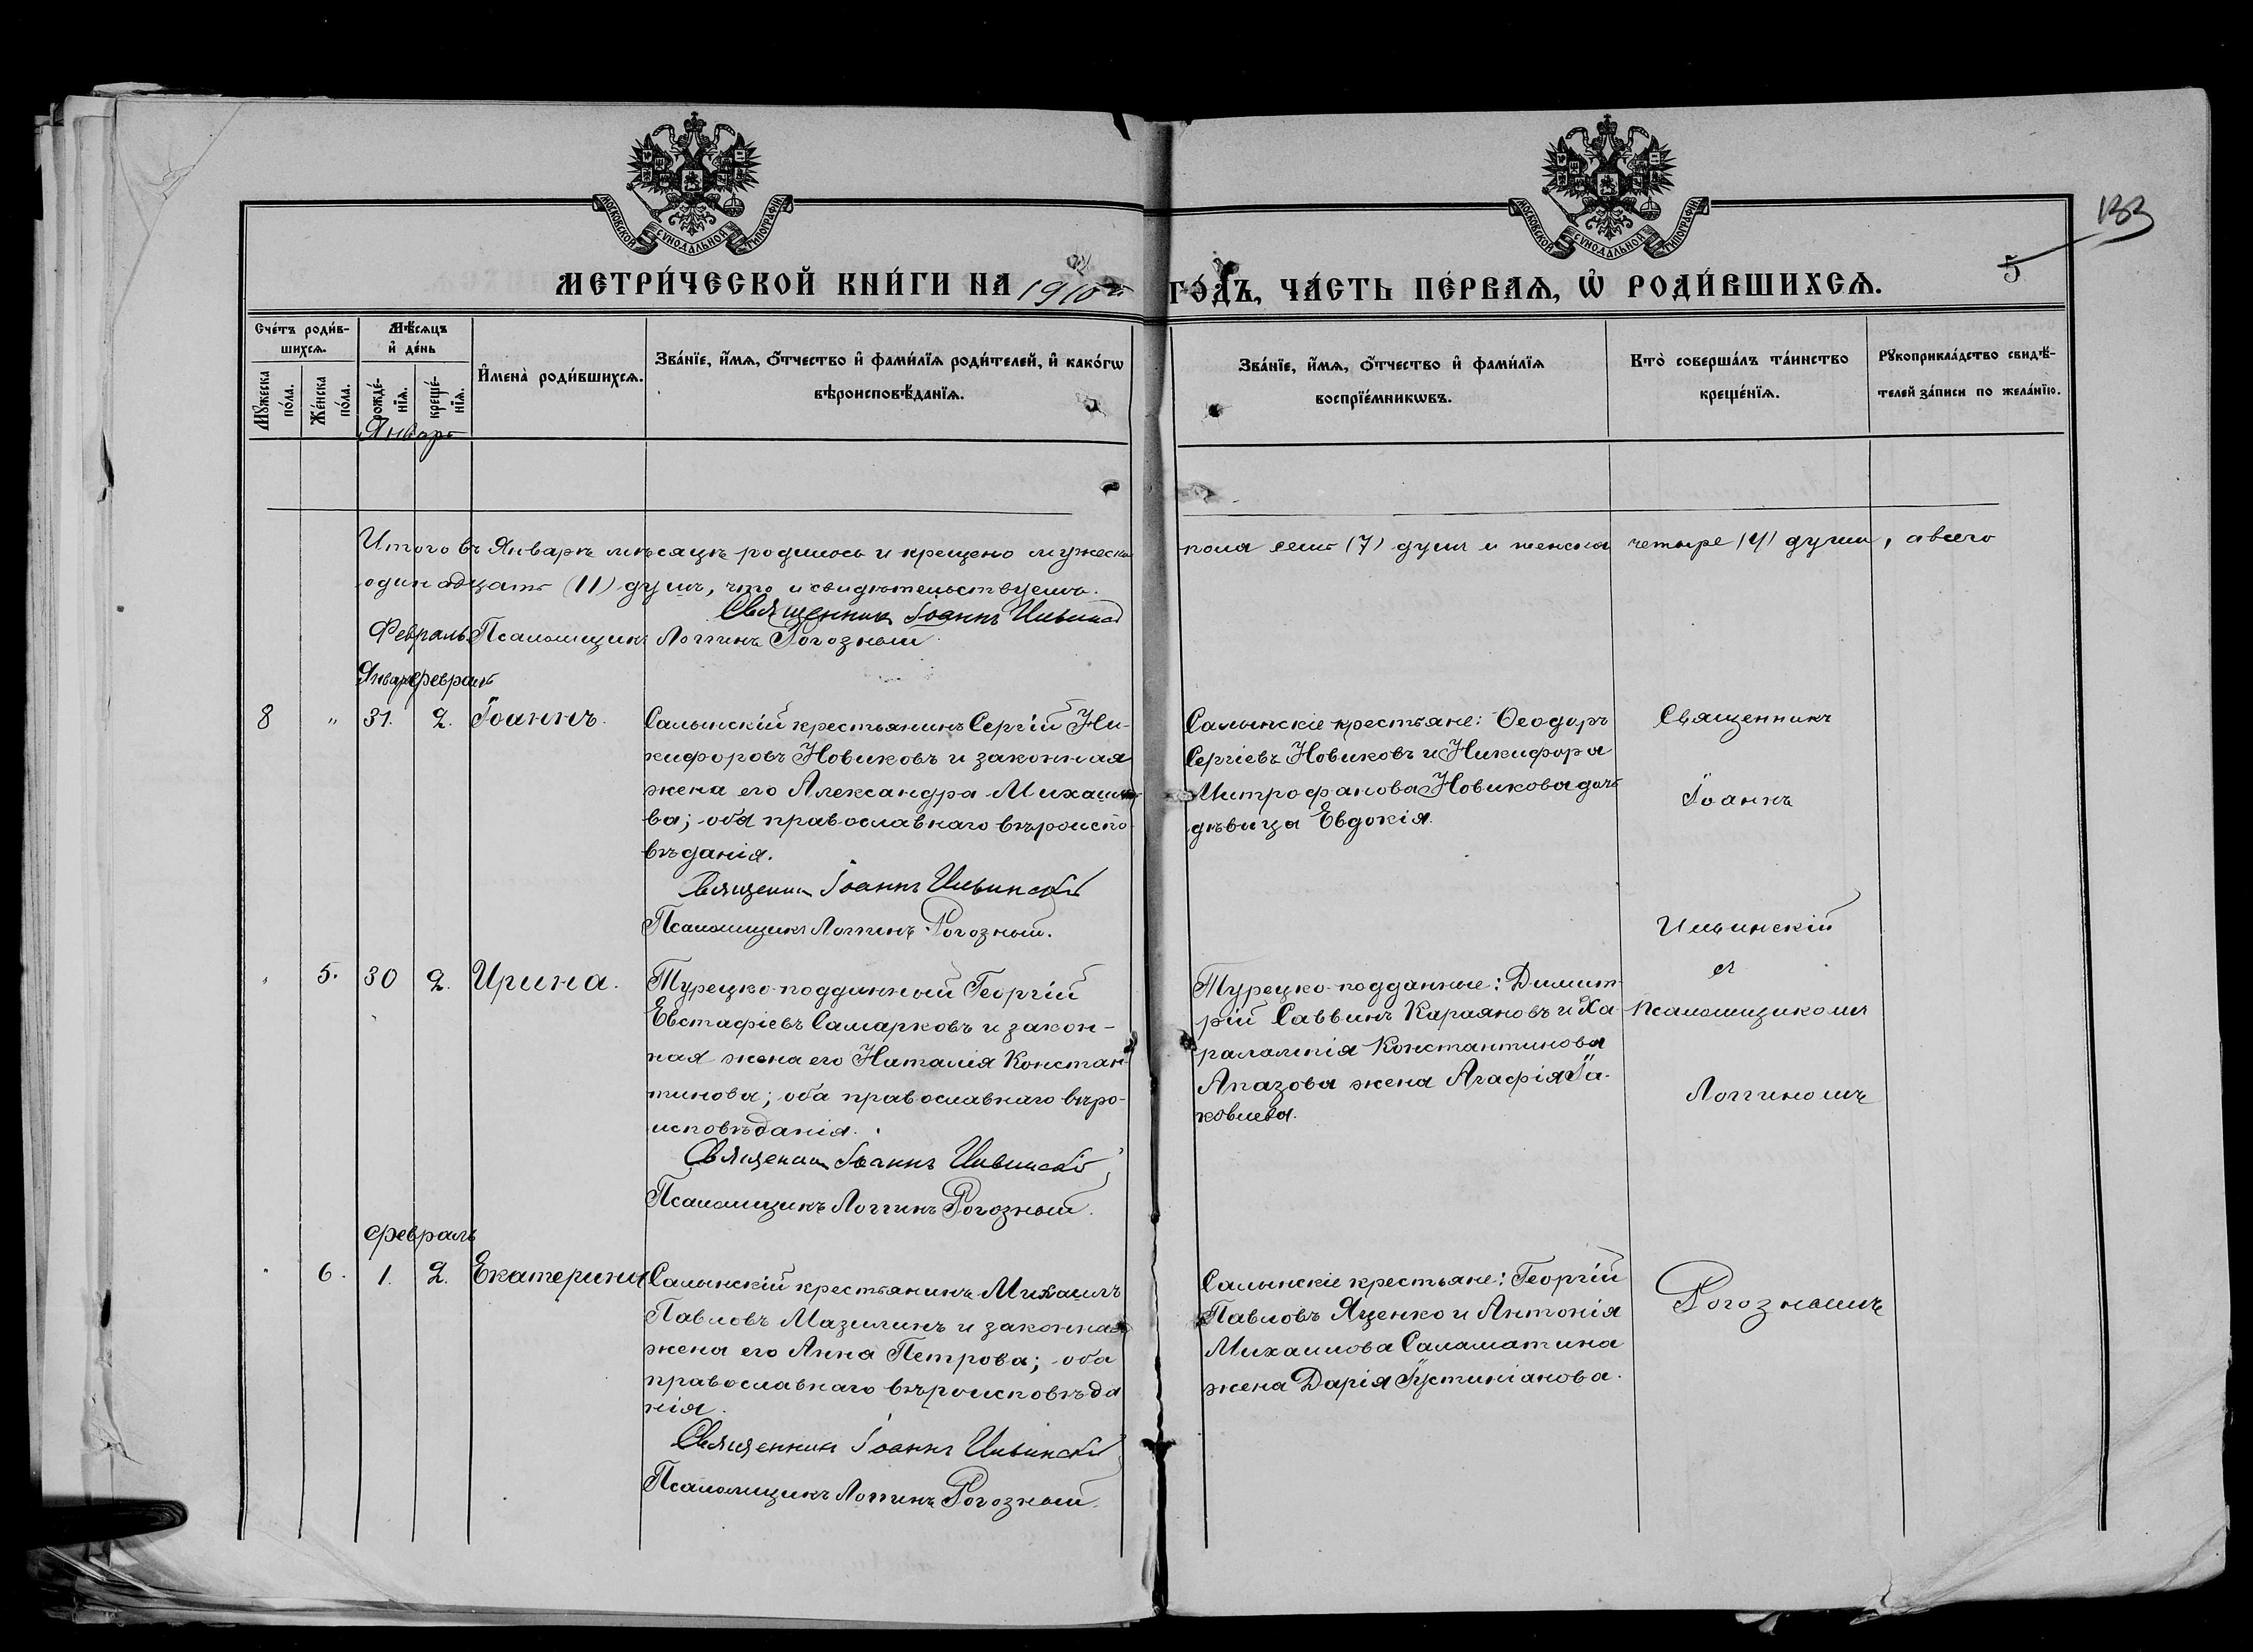 МОСКОВСКОЙ СѴНОДАЛЬНОЙ ТИПОГРАФІИ
МОСКОВСКОЙ СѴНОДАЛЬНОЙ ТИПОГРАФІИ
133
5
МЕТРИ́ЧЕСКОЙ КНИ́ГИ НА 1910 й ГО́ДЪ, ЧА́СТЬ ПЕ́РВАѦ, Ѡ҆ РОДИ́ВШИХСѦ.
Сче́тъ роди́в-
шихсѧ.
Мѣ́сѧцъ
и҆ де́нь
Мꙋ́жеска
по́ла.
Же́нска
по́ла.
рожде́-
нїѧ.
креще́-
нїѧ.
И҆мена̀ роди́вшихсѧ.
Зва́нїе, и҆́мѧ, ѻ҆́тчество и҆ фами́лїѧ роди́телей, и҆ како́гѡ
вѣроисповѣ́данїѧ.
Зва́нїе, и҆́мѧ, ѻ҆́тчество и҆ фами́лїѧ
воспрїе́мникѡвъ.
Кто̀ соверша́лъ та́инство
креще́нїѧ.
Рꙋкоприкла́дство свидѣ́-
телей за́писи по жела́нїю.
Январь
Итого въ Январѣ мѣсяцѣ родилось и крещено мужеска пола семь (7) душъ и женска четыре (4) души, а всего
одинадцать (11) душъ, что и свидѣтельствуемъ.
Священникъ Іоаннъ Ильинскій
Февраль Псаломщикъ Логгинъ Рогозный
Январь февраль
8 " 31. 2. Іоаннъ.
Салынскій крестьянинъ Сергій Ни-
кифоровъ Новиковъ и законная
жена его Александра Михаило-
ва; оба православнаго вѣроиспо-
вѣданія.
Священникъ Іоаннъ Ильинскій
Псаломщикъ Логгинъ Рогозный.
Салынскіе крестьяне: Ѳеодоръ
Сергіевъ Новиковъ и Никифора
Митрофанова Новикова дочь
дѣвица Евдокія.
Священникъ
Іоаннъ
Ильинскій
съ
псаломщикомъ
Логгиномъ
Рогознымъ
" 5. 30 2. Ирина.
Турецко-подданный Георгій
Евстафіевъ Самарковъ и закон-
ная жена его Наталія Констан-
тинова; оба православнаго вѣро-
исповѣданія.
Священникъ Іоаннъ Ильинскій
Псаломщикъ Логгинъ Рогозный.
Турецко-подданные: Димит-
рій Саввинъ Караяновъ и Ха-
ралампія Константинова
Апазова жена Агафія Іа-
ковлева.
февраль
" 6. 1. 2. Екатерина
Салынскій крестьянинъ Михаилъ
Павловъ Мазилинъ и законная
жена его Анна Петрова; оба
православнаго вѣроисповѣда
нія.
Священникъ Іоаннъ Ильинскій
Псаломщикъ Логгинъ Рогозный.
Салынскіе крестьяне: Георгій
Павловъ Яценко и Антонія
Михаилова Саламатина
жена Дарія Іустиніанова.